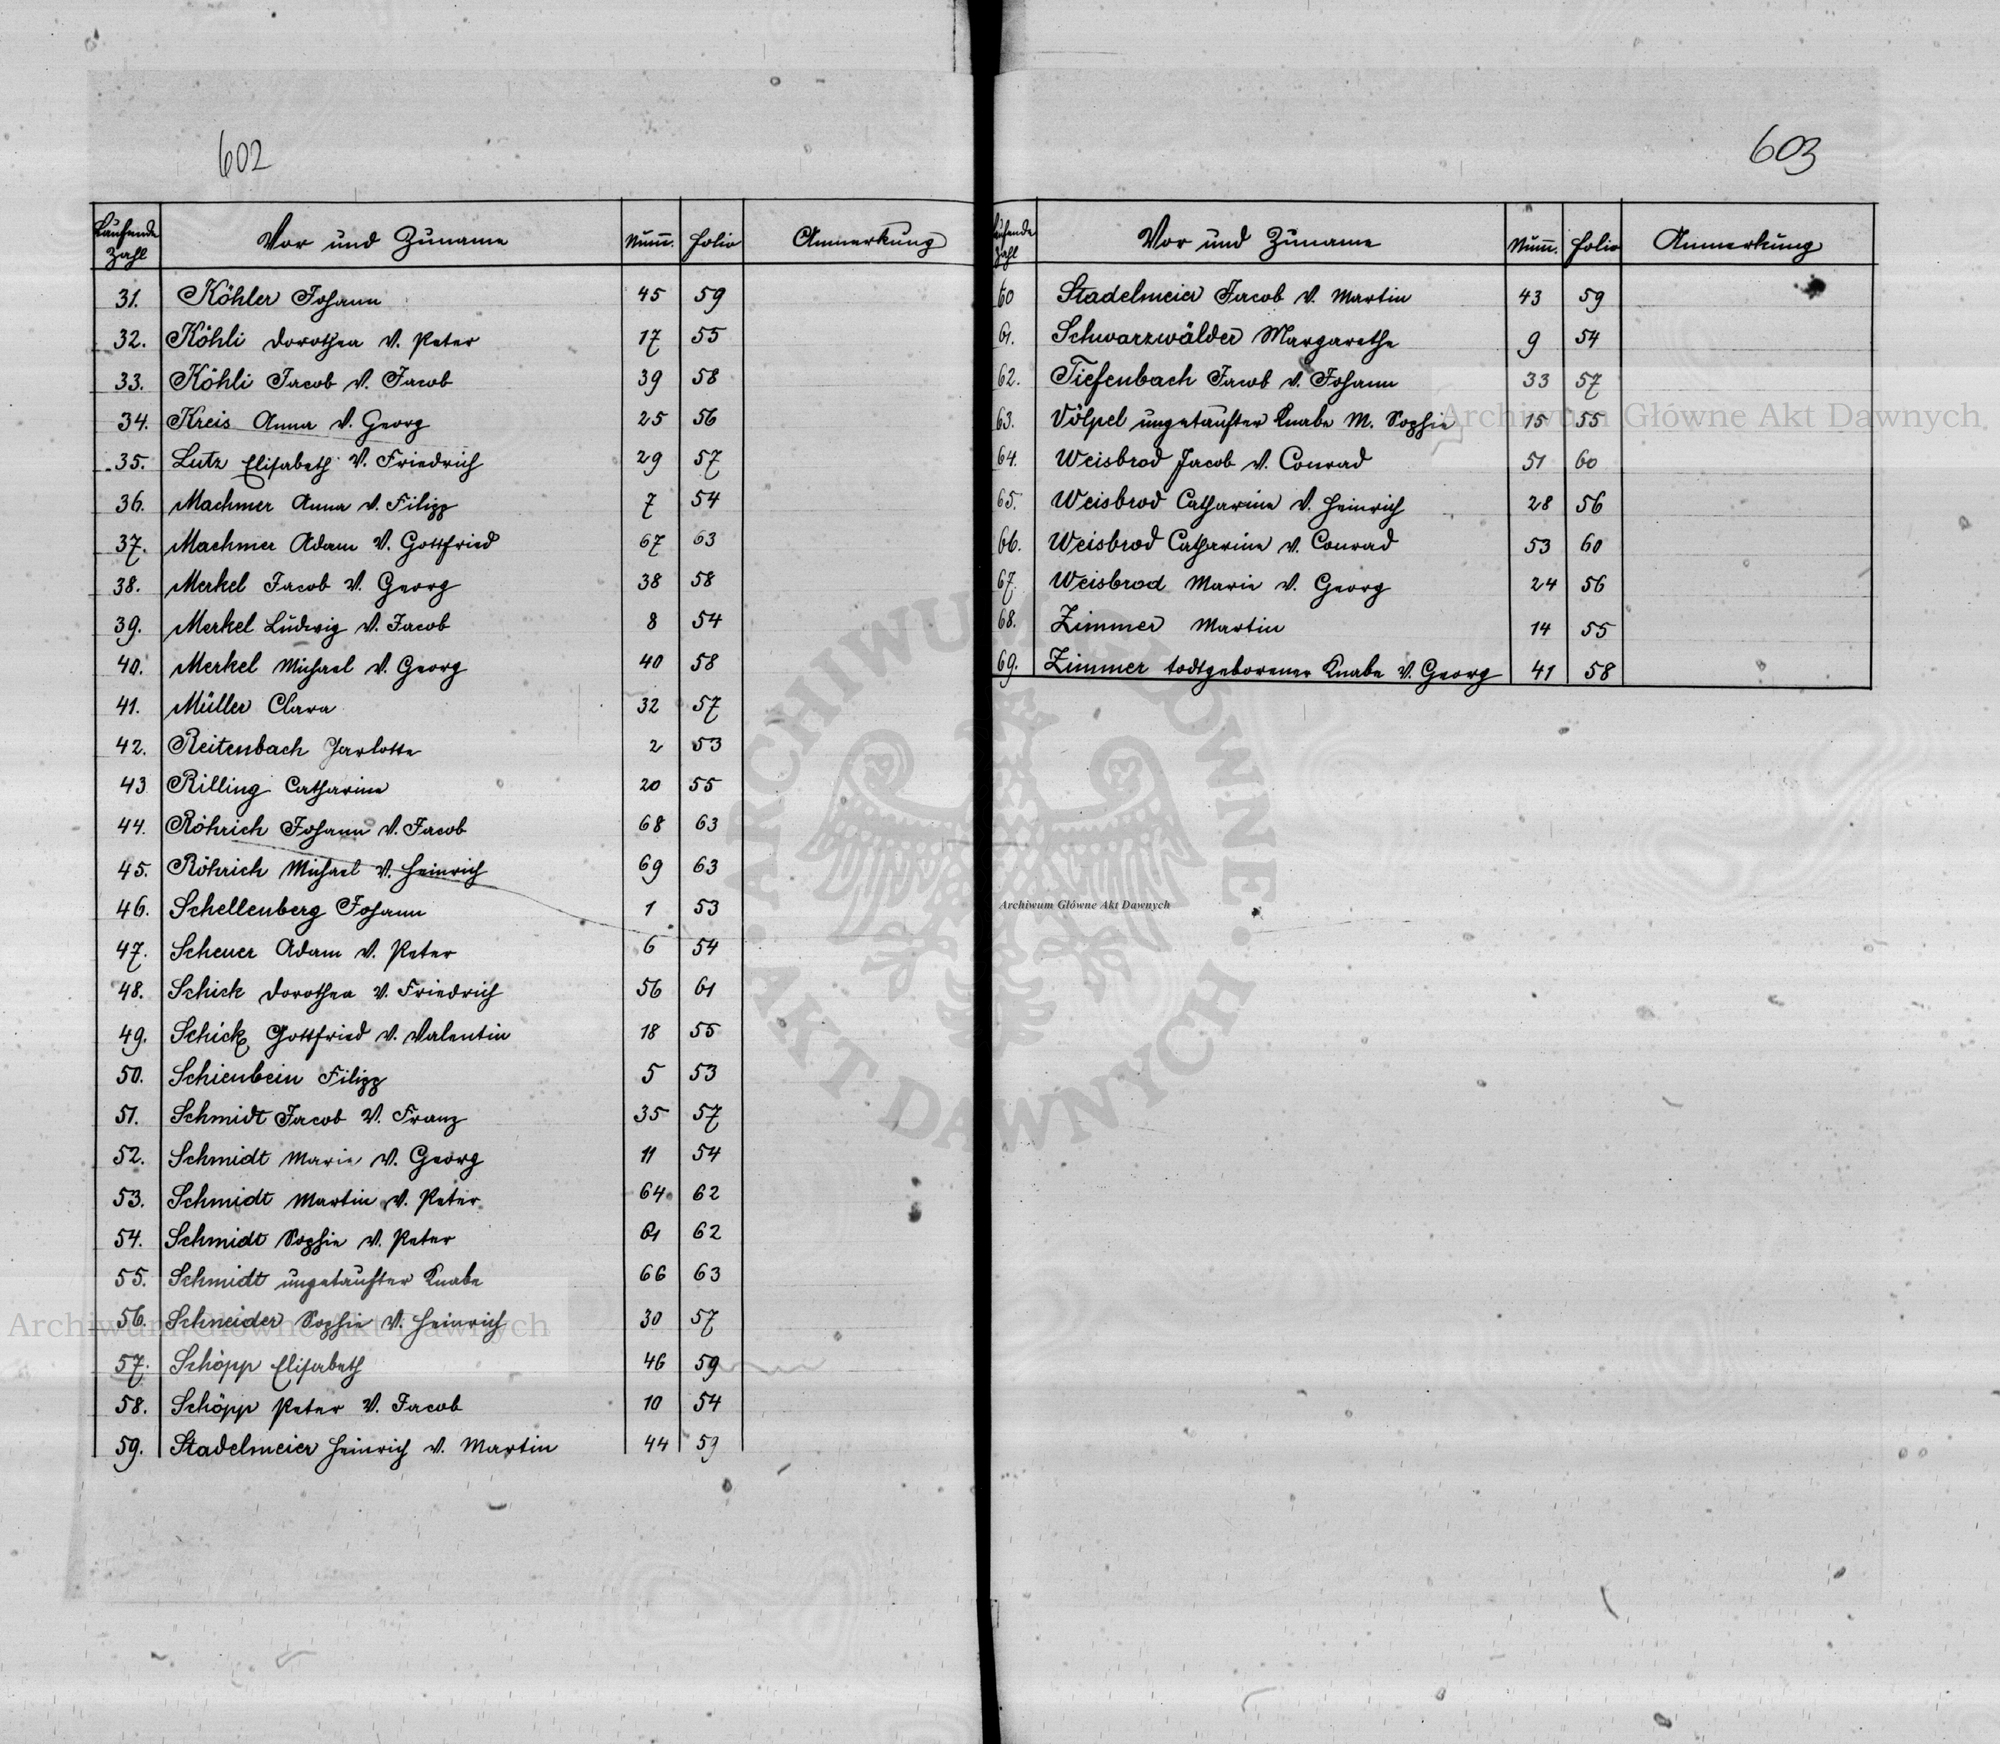 602
Laufende Zahl Vor und Zuname Num. Folio Anmerkung
31. Köhler Johann 45 59
32. Köhli Dorothea v. Peter 17 55
33. Köhli Jacob v. Jacob 39 58
34. Kreis Anna v. Georg 25 56
35. Lutz Elisabeth v. Friedrich 29 57
36. Machmer Anna v. Filipp 7 54
37. Machmer Adam v. Gottfried 67 63
38. Merkel Jacob v. Georg 38 58
39. Merkel Ludwig v. Jacob 8 54
40. Merkel Michael v. Georg 40 58
41. Müller Clara 32 57
42. Reitenbach Jarlotte 2 53
43 Rilling Catharine 20 55
44. Röhrich Johann v. Jacob 68 63
45. Röhrich Michael v. Heinrich 69 63
46. Schellenberg Johann 1 53
47. Scheuer Adam v. Peter 6 54
48. Schick Dorothea v. Friedrich 56 61
49. Schick Gottfried v. Valentin 18 55
50. Schienbein Filipp 5 53
51. Schmidt Jacob v. Franz 35 57
52. Schmidt Marie v. Georg 11 54
53. Schmidt Martin v. Peter 64 62
54. Schmidt Sophie v. Peter 61 62
55. Schmidt ungetaufter Knabe 66 63
56. Schneider Sophie v. Heinrich 30 57
57. Schöpp Elisabeth 46 59
58. Schöpp Peter v. Jacob 10 54
59. Stadelmeier Heinrich v. Martin 44 59
603
Laufende Zahl Vor und Zuname Num. Folio Anmerkung
60 Stadelmeier Jacob v. Martin 43 59
61. Schwarzwälder Margarethe 9 54
62. Tiefenbach Jacob v. Johann 33 57
63. Völpel ungetaufter Knabe M. Sophie 15 55
64. Weisbrod Jacob v. Conrad 51 60
65. Weisbrod Catharine v. Heinrich 28 56
66. Weisbrod Catharine v. Conrad 53 60
67. Weisbrod Marie v. Georg 24 56
68. Zimmer Martin 14 55
69. Zimmer todtgeborener Knabe v. Georg 41 58
Archiwum Główne Akt Dawnych
Archiwum Główne Akt Dawnych
Archiwum Główne Akt Dawnych
ARCHIWUM GŁÓWNE · AKT DAWNYCH ·